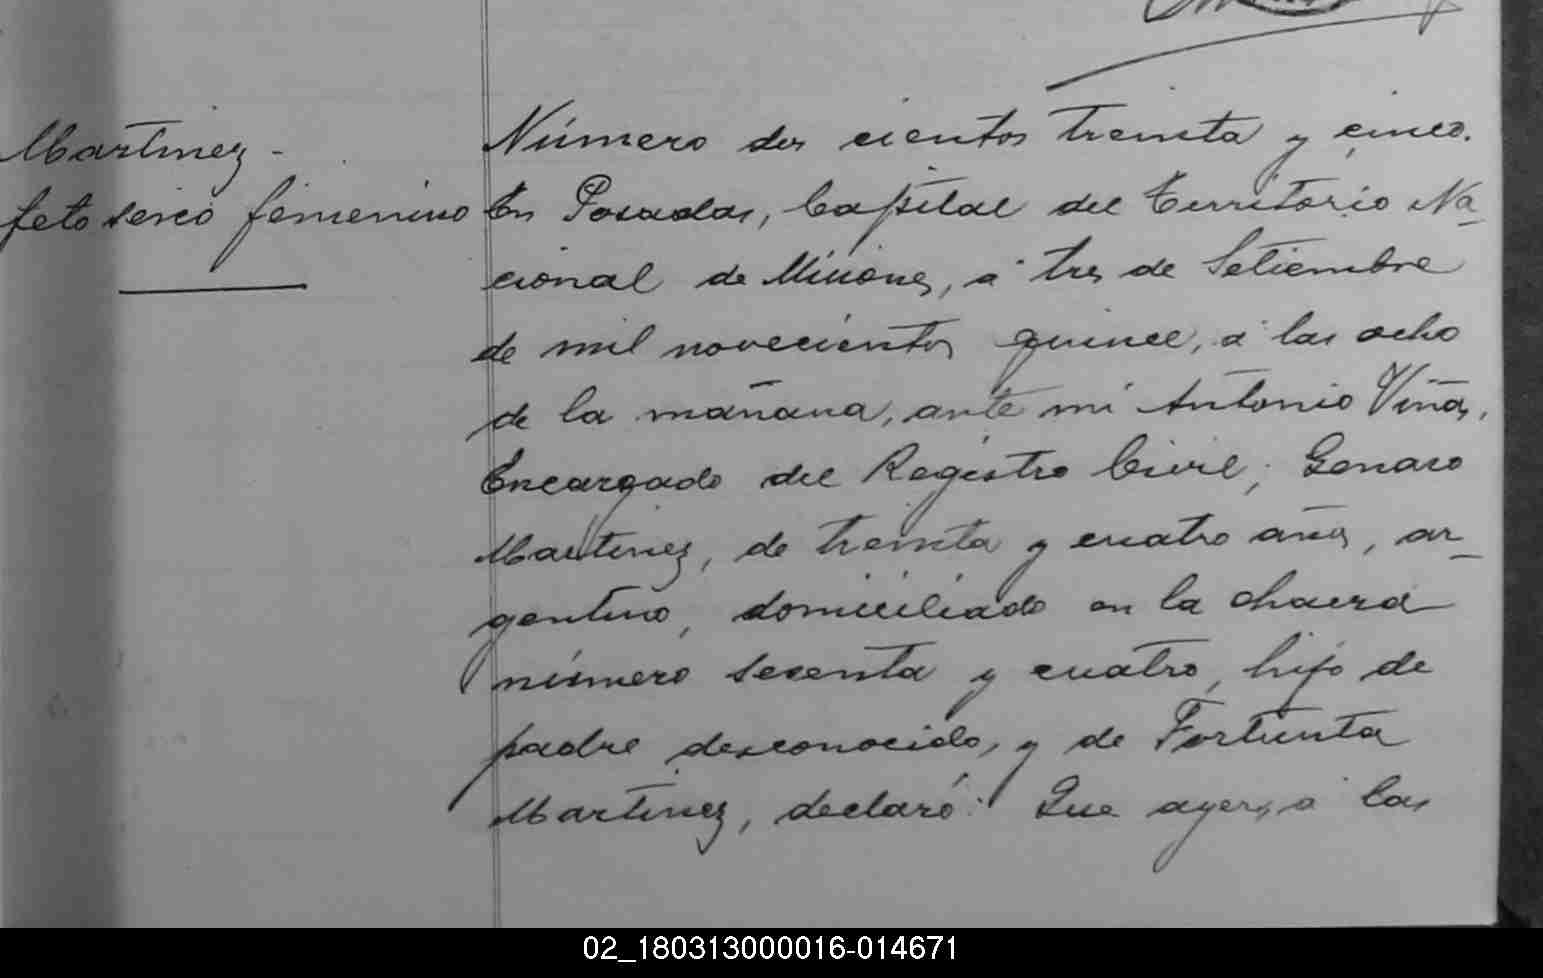 Martinez -
feto sexo femenino
Número dos cientos treinta y cinco.
En Posadas, Capital del Territorio Na
cional de Misiones, á tres de Setiembre
de mil novecientos quince, á las ocho
de la mañana, ante mi Antonio Viñas,
Encargado del Registro Civil; Genaro
Martinez, de treinta y cuatro años, ar_
gentino, domiciliado en la chacra
número sesenta y cuatro, hijo de
padre desconocido, y de Fortunta
Martinez, declaró: Que ayer, á las
02_180313000016-014671